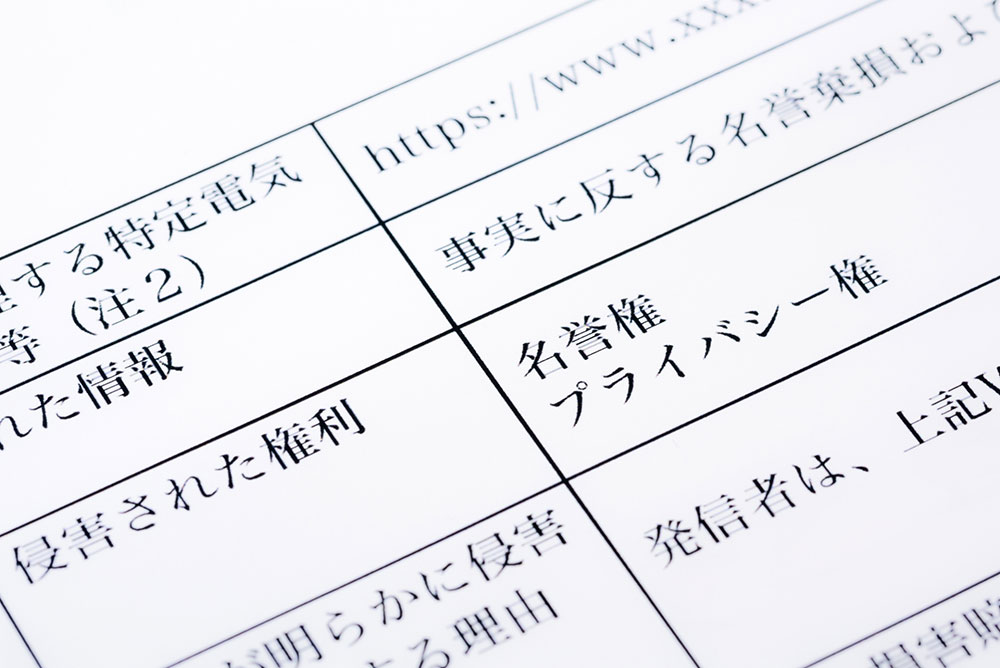 https://www.xxx
する特定電気
等（注２）
事実に反する名誉棄損およ
れた情報
名誉権
プライバシー権
侵害された権利
発信者は、上記
が明らかに侵害
する理由
損害賠